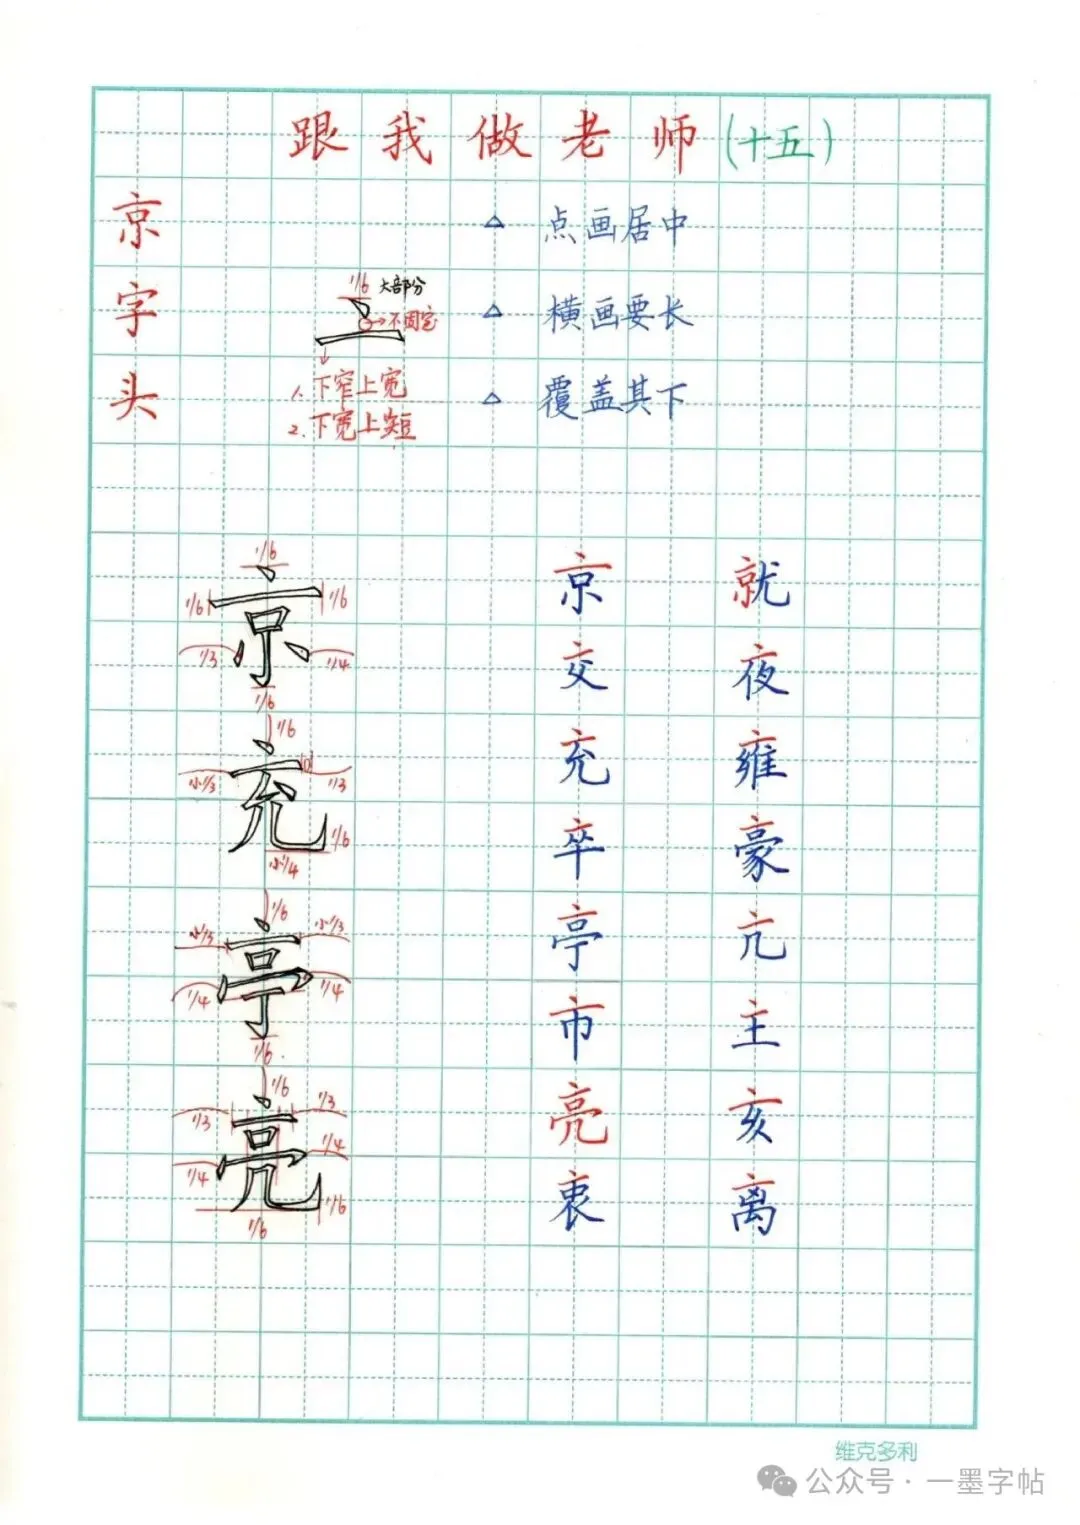 跟我做老师(十五)
京字头
1/6 大部分
不固定
1. 下窄上宽
2. 下宽上短
△ 点画居中
△ 横画要长
△ 覆盖其下
1/6
1/6 京 1/6
1/3 1/4
1/6
1/6
小1/3 充 1/3
1/6
小1/4
1/6
小1/3 亭 小1/3
1/4 1/4
1/6
1/6
1/3 亮 1/3
1/4 1/4
1/6
1/6
京 就
交 夜
充 雍
卒 豪
亭 亢
市 主
亮 亥
衷 离
维克多利
公众号·一墨字帖